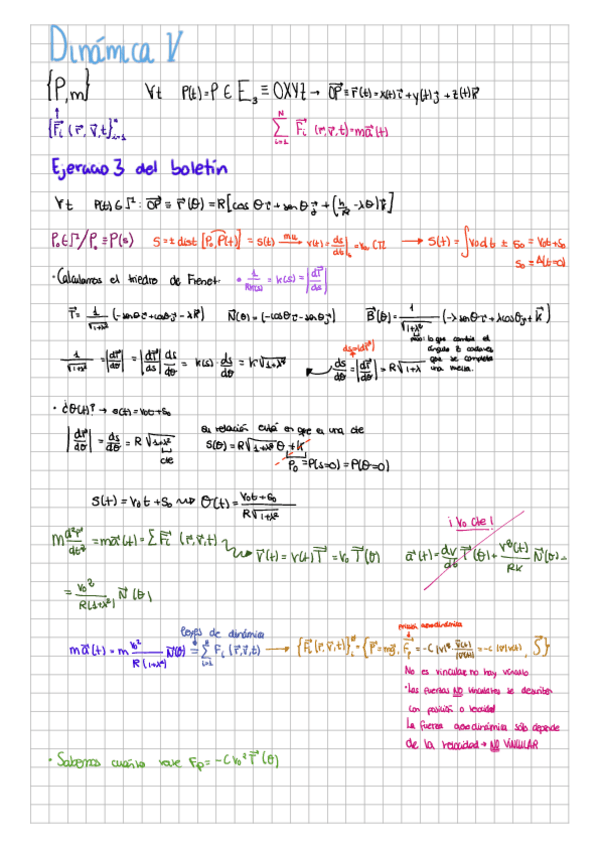 Dinámica V
{P,m} ∀t P(t) = P ∈ E₃ ≡ OXYZ → OP⃗ ≡ r⃗(t) = x(t)i⃗ + y(t)j⃗ + z(t)k⃗
{F⃗i (r⃗, v⃗, t)}ⁿi=1 ∑ᴺi=1 F⃗i (r⃗, v⃗, t) = ma⃗(t)
Ejercicio 3 del boletín
∀t P(t) ∈ Γ : OP⃗ ≡ r⃗(θ) = R[cos θ i⃗ + sen θ j⃗ + (h/R - λθ) k⃗]
P₀ ∈ Γ / P₀ ≡ P(s) S = ± dist [P₀, P(t)] = s(t) mu→ v(t) = ds/dt = v₀ cte → s(t) = ∫ v₀dt ± s₀ = v₀t + s₀
s₀ = s(t=0)
· Calculamos el triedro de Frenet · 1/R(s) = k(s) = |dT⃗/ds|
T⃗ = 1/√1+λ² (-senθ i⃗ + cosθ j⃗ - λk⃗) N⃗(θ) = (-cosθ i⃗ - senθ j⃗) B⃗(θ) = 1/√1+λ² (-λ senθ i⃗ + λcosθ j⃗ + k⃗)
1/√1+λ² = |dT⃗/dθ| = |dT⃗/ds| ds/dθ = k(s) · ds/dθ = k R√1+λ² ds/dθ = |dr⃗/dθ| = R√1+λ
ds = |dr⃗|
lo que cambia el
ángulo θ
que se completa
una
· ¿θ(t)? → s(t) = v₀t + s₀
|dr⃗/dθ| = ds/dθ = R√1+λ² cte
La relación está en que es una cte
s(θ) = R√1+λ² θ + k
P₀ = P(s=0) = P(θ=0)
s(t) = v₀t + s₀ ⇝ θ(t) = v₀t + s₀ / R√1+λ²
¡v₀ cte!
m d²r⃗/dt² = ma⃗(t) = ∑F⃗i (r⃗, v⃗, t) ⇝ v⃗(t) = v(t) T⃗ = v₀ T⃗(θ) a⃗(t) = dv/dt T⃗(θ) + v²(t)/Rk N⃗(θ) =
= v₀²/R(1+λ²) N⃗(θ)
leyes de dinámica
fricción aerodinámica
ma⃗(t) = m v₀²/R(1+λ²) N⃗(θ) = ∑ⁿi=1 Fi (r⃗, v⃗, t) → {F⃗i (r⃗, v⃗, t)} = {P⃗ = mg⃗, F⃗p = -C |v|² · v⃗(t)/|v(t)| = -C |v| v(t), }
No es vincular no hay vínculo
· Las fuerzas NO vinculares se describen
con posición o velocidad
La fuerza aerodinámica sólo depende
de la velocidad → NO VINCULAR
· Sabemos cuánto vale Fp = -C v₀² T⃗(θ)